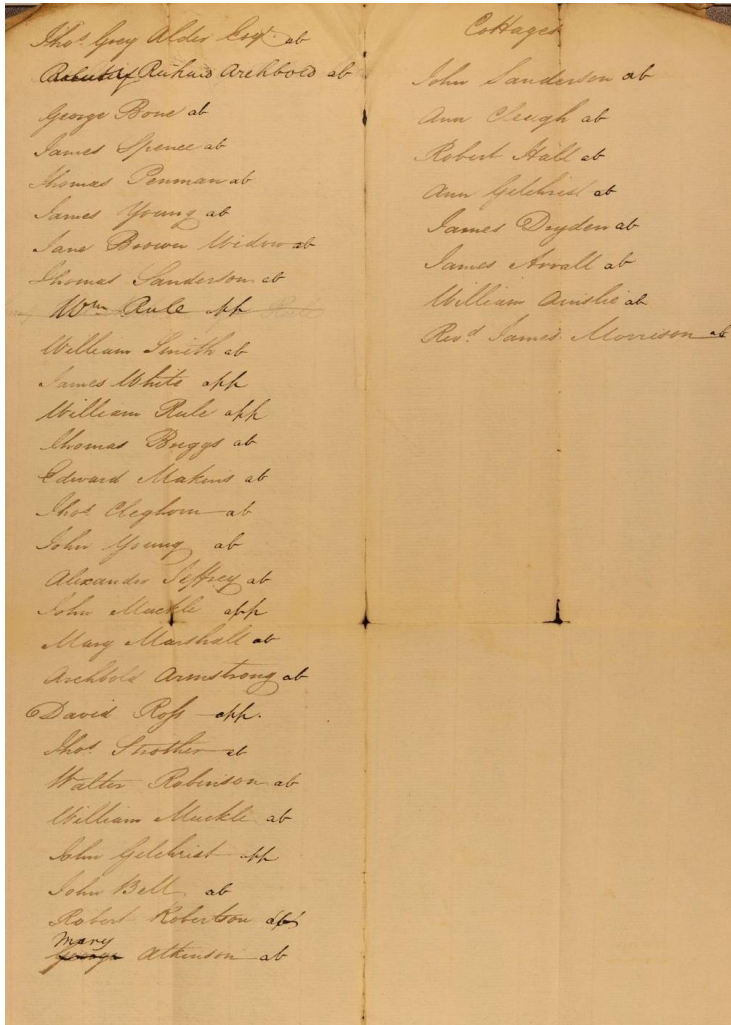 Thos. Grey Alder Esqr. ab
Richard Archbold ab
George Bone ab
James Spence ab
Thomas Penman ab
James Young ab
Jane Brown Widow ab
Thomas Sanderson ab
Wm Rule app
William Smith ab
James White app
William Rule app
Thomas Briggs ab
Edward Makins ab
Thos. Cleghorn ab
John Young ab
Alexander Jeffrey ab
John Muckle app
Mary Marshall ab
Archbold Armstrong ab
David Ross app.
Thos. Strother ab
Walter Robinson ab
William Muckle ab
John Gilchrist app
John Bell ab
Robert Robertson
Mary
George Atkinson ab
Cottages
John Sanderson ab
Ann Cleugh ab
Robert Hall ab
Ann Gilchrist ab
James Dryden ab
James Arrall ab
William Ainslie ab
Revd. James Morrison ab